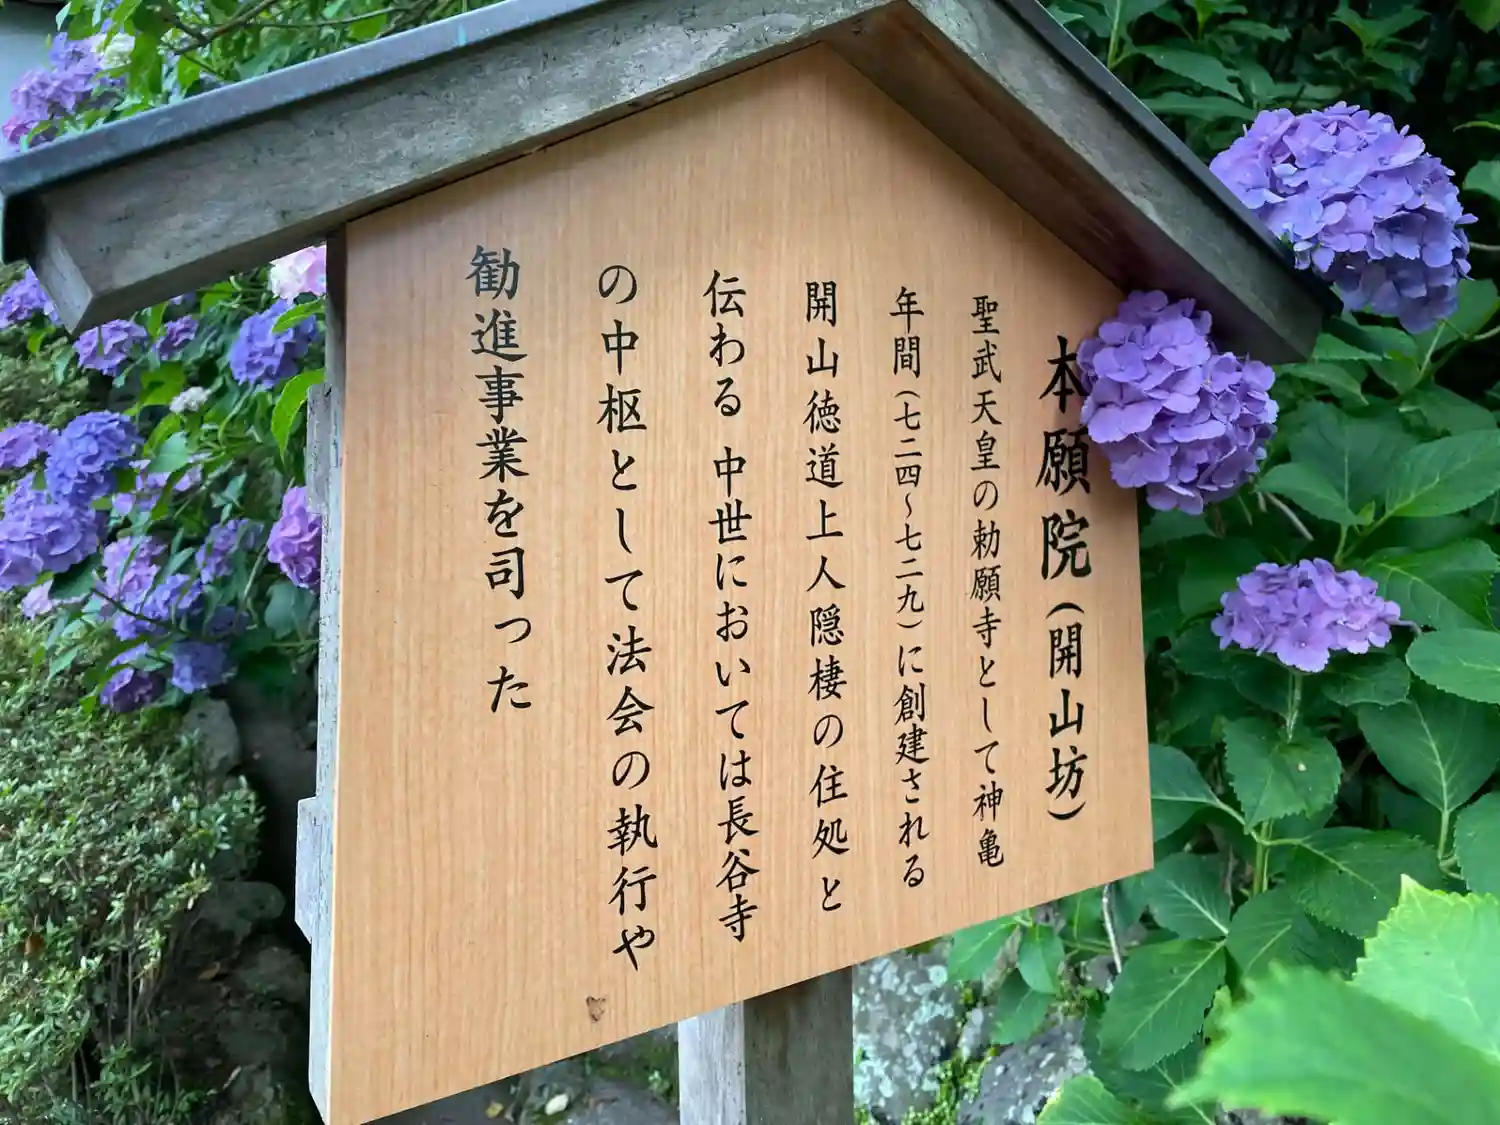 本願院(開山坊)
聖武天皇の勅願寺として神亀
年間(七二四~七二九)に創建される
開山徳道上人隠棲の住処と
伝わる 中世においては長谷寺
の中枢として法会の執行や
勧進事業を司った